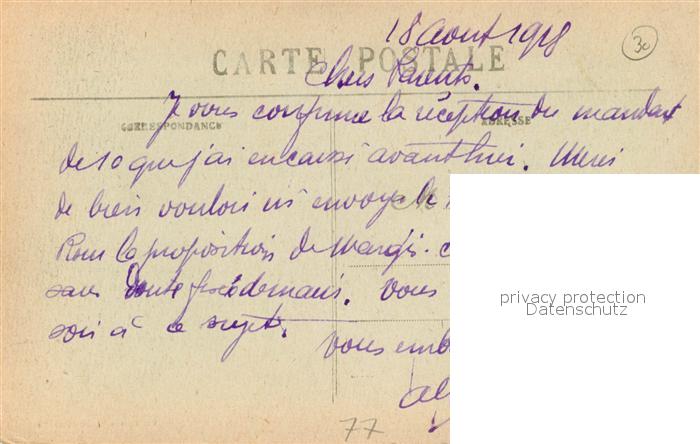 18 Aout 1918
30
CARTE POSTALE
Chers Parents.
Je vous confirme la réception du mandat
CORRESPONDANCE
ADRESSE
de 10 que j'ai encaissé avant hier. Merci
de bien vouloir m'envoyer le
Pour la proposition de Margis. c
sans doute fixé demain. Vous
soir à ce sujet.
privacy protection
Datenschutz
Vous emb
al
77